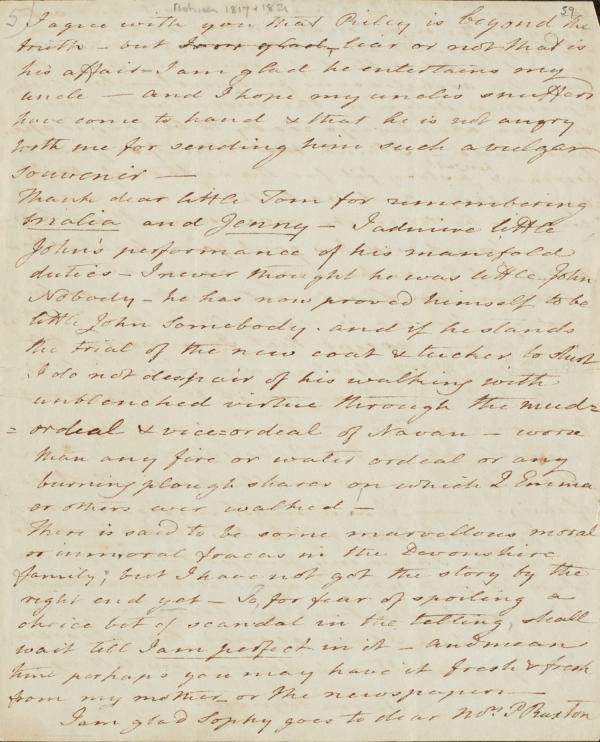 5
Between 1817 & 1821
59
I agree with you that Priley is beyond the
truth – but I am glad liar or not that is
his affair – I am glad he entertains my
uncle – and I hope my uncle's snuffers
have come to hand & that he is not angry
with me for sending him such a vulgar
souvenir –
Thank dear little Tom for remembering
and Jenny – I admire little
John's performance of his manifold
duties – I never thought he was little John
Nobody – he has now proved himself to be
little John Somebody. and if he stands
the trial of the new coat & tucker to
I do not despair of his walking with
unblenched virtue through the mud=
=ordeal & vice=ordeal of Navan – worse
than any fire or water ordeal or any
burning plough shares on which Q Emma
or others ever walked –
There is said to be some marvellous moral
or immoral fracas in the Devonshire
family; but I have not got the story by the
right end yet – So, for fear of spoiling a
choice bit of scandal in the telling, shall
wait till I am perfect in it – and mean
time perhaps you may have it fresh & fresh
from my mother or the newspapers –
I am glad Sophy goes to dear Mrs. P Ruxton